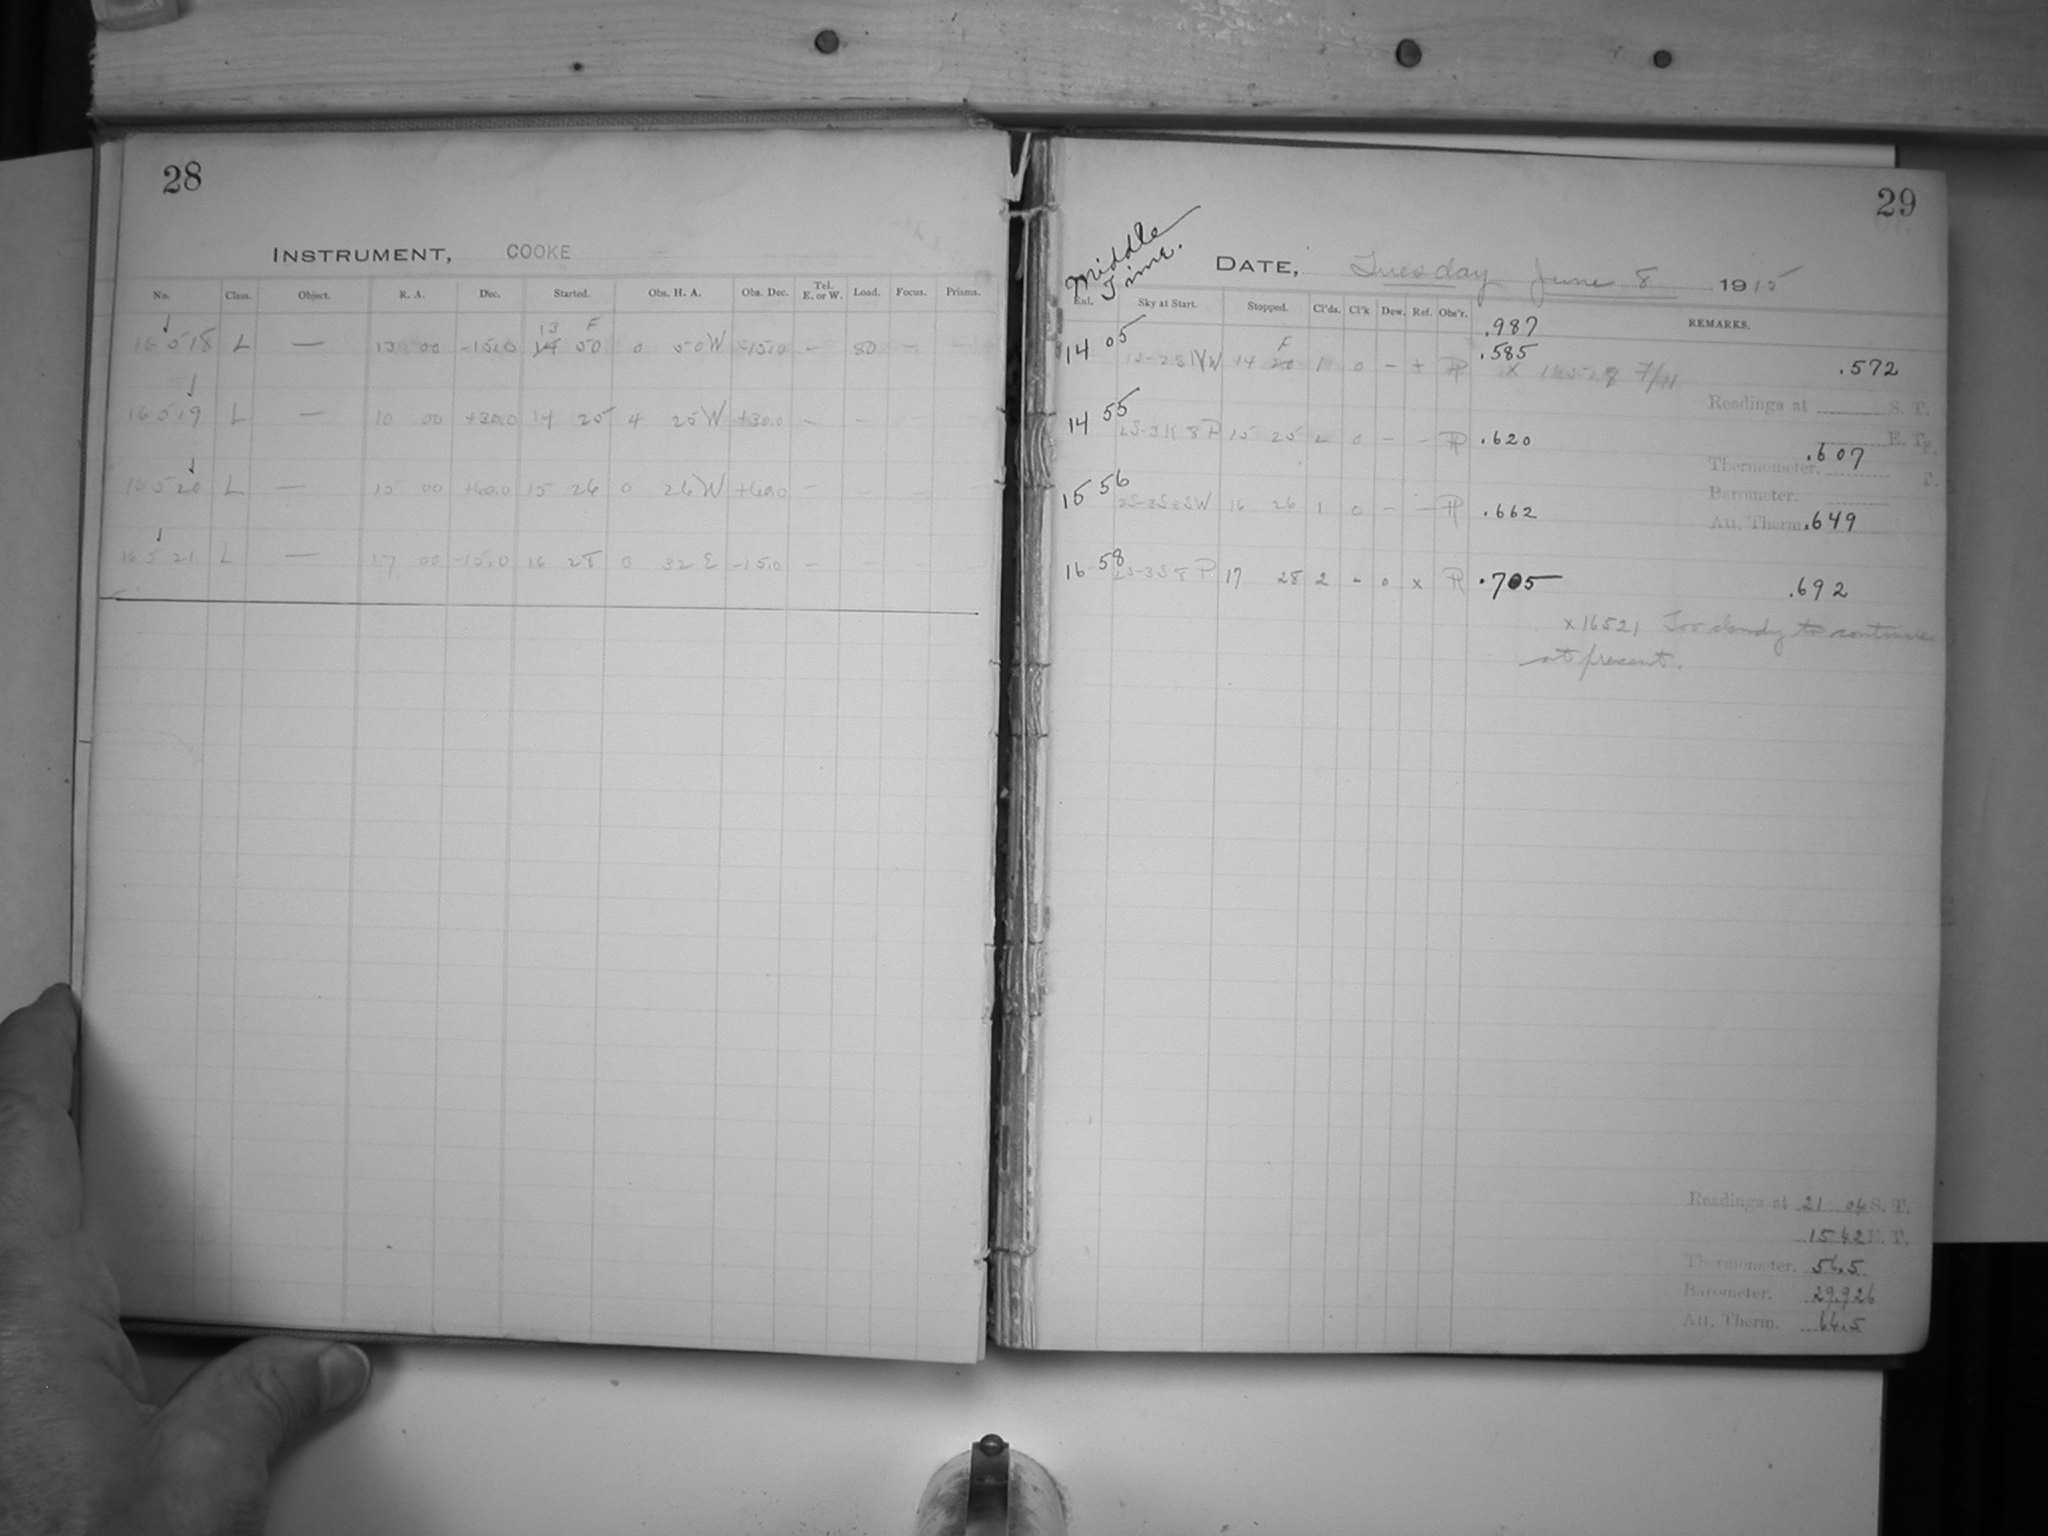 28
INSTRUMENT, COOKE
No. Class. Object. R. A. Dec. Started. Obs. H. A. Obs. Dec. Tel. E. or W. Load. Focus. Prisms.
13 F
16518 L — 13 00 -15.0 14 50 0 50 W -15.0 - 80 - -
16519 L — 10 00 +30.0 14 25 4 25 W +30.0 - - - -
16520 L — 15 00 +60.0 15 26 0 26 W +60.0 - - - -
16521 L — 17 00 -15.0 16 28 0 32 E -15.0 - -
29
Middle Time.
DATE, Tuesday June 8 1915
Ext. Sky at Start. Stopped. Cl'ds. Cl'k Dew. Ref. Obs'r. REMARKS.
.987
14 05 14 20 1 0 - + .585 .572
F
Readings at S. T.
14 55 15 25 2 0 - - .620
E. T.
.607
Thermometer. F.
Barometer.
15 56 16 26 1 0 - - .662
Att. Therm. .649
16 58 17 28 2 - 0 x .705 .692
x 16521 Too cloudy to continue
at present.
Readings at 21 06 S. T.
1542 E. T.
Thermometer. 56.5
Barometer. 29.926
Att. Therm. 64.5